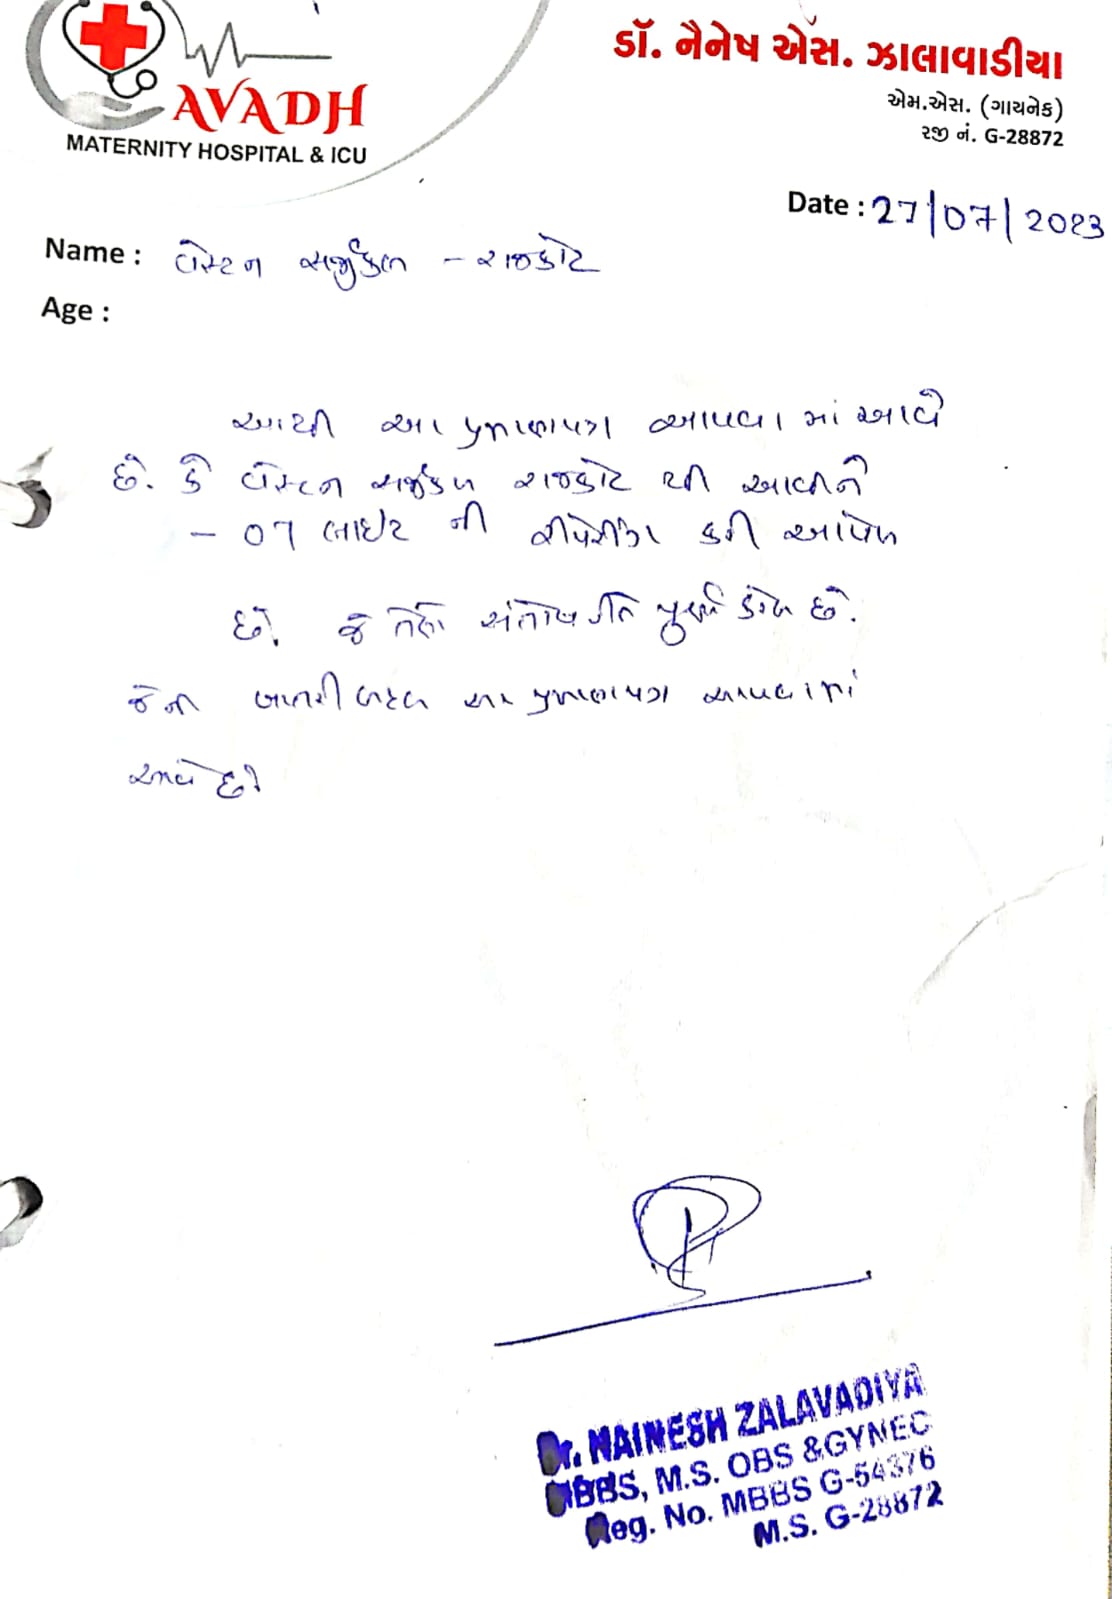 AVADH
MATERNITY HOSPITAL & ICU
ડૉ. નૈનેષ એસ. ઝાલાવાડીયા
એમ.એસ. (ગાયનેક)
રજી નં. G-28872
Date : 27/07/2023
Name : વેસ્ટર્ન સર્જીકલ - રાજકોટ
Age :
આથી આ પ્રમાણપત્ર આપવામાં આવે
છે. કે વેસ્ટર્ન સર્જીકલ રાજકોટ થી આવીને
- 07 લાઇટ ની રીપેરીંગ કરી આપેલ
છે. જે સંતોષ રીતે પુર્ણ કરેલ છે.
જેની ખાતરી બદલ આ પ્રમાણપત્ર આપવામાં
આવે છે
Dr. NAINESH ZALAVADIYA
MBBS, M.S. OBS &GYNEC
Reg. No. MBBS G-54376
M.S. G-28872